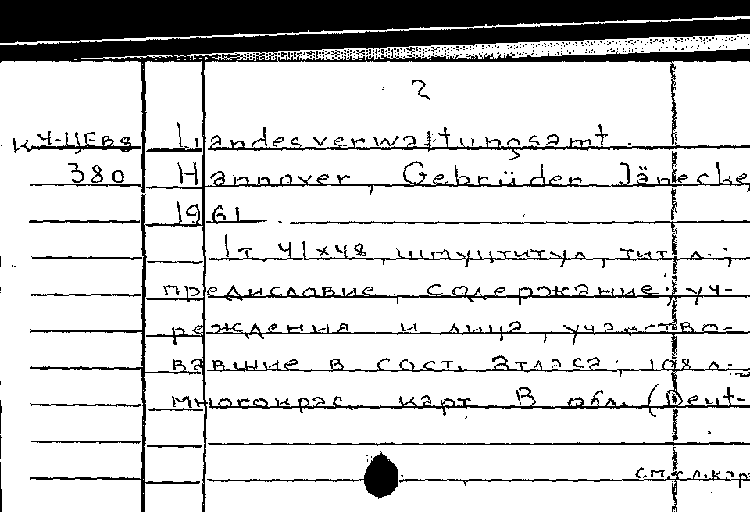 2
КЧ-ЦЕВ8 Landesverwaltungsamt.
380 Hannover, Gebrüder Jänecke,
1961
1т. 41x48, шмуцтитул, тит. л.;
предисловие, содержание; уч-
реждения и лица, участво-
вавшие в сост. атласа; 108 л.
многокрас. карт В обл. (Deut-
см.сл.кар